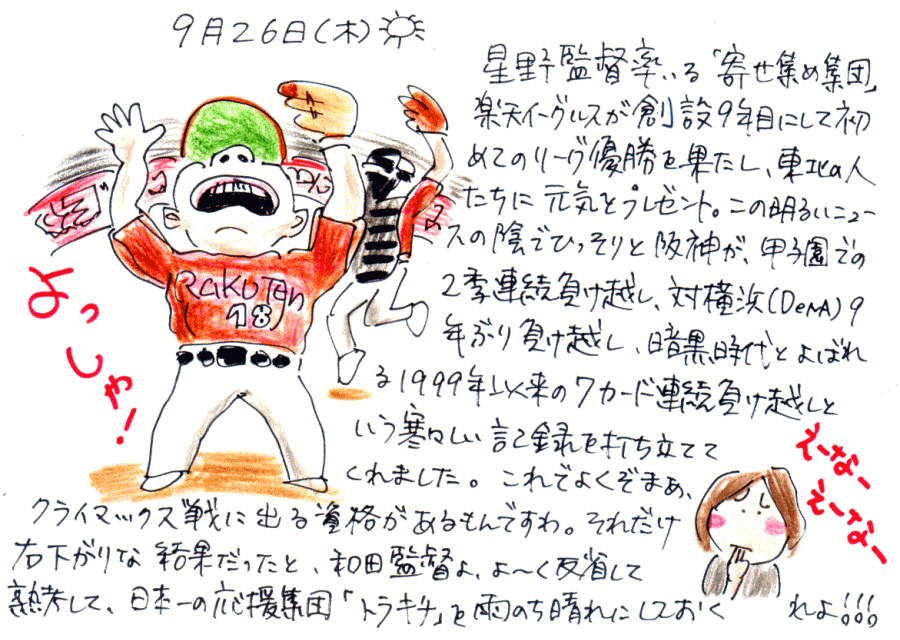 9月26日(木)
星野監督率いる「寄せ集め集団」
楽天イーグルスが創設9年目にして初
めてのリーグ優勝を果たし、東北の人
たちに元気をプレゼント。この明るいニュー
スの陰でひっそりと阪神が、甲子園での
2季連続負け越し、対横浜(DeNA)9
年ぶり負け越し、暗黒時代とよばれ
る1999年以来の7カード連続負け越しと
いう寒々しい記録を打ち立てて
くれました。これでよくぞまぁ、
クライマックス戦に出る資格があるもんですわ。それだけ
右下がりな結果だったと、和田監督よ、よ〜く反省して
熟考して、日本一の応援集団「トラキチ」を雨のち晴れにしておく
れよ!!!
よっしゃ!
RAKUTEN
18
えーなー
えーなー